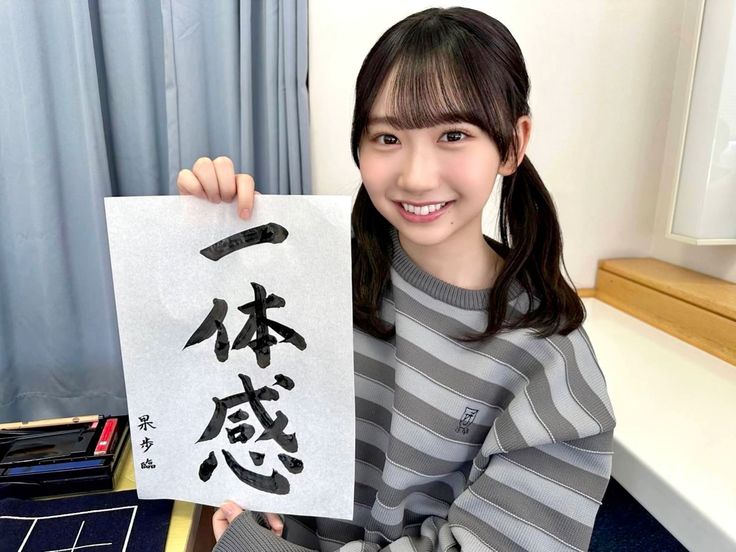 一体感
果歩臨